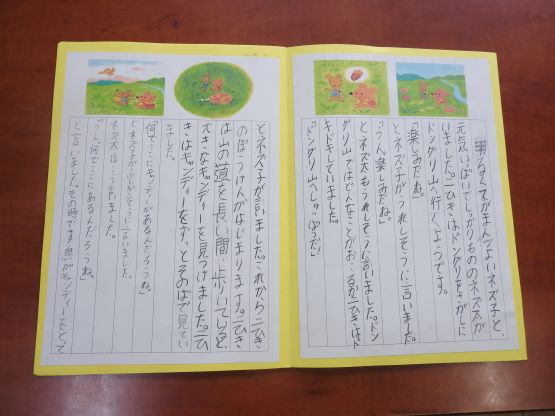 明なくてがまんづよいネズ子と、
元気いっぱいでしっかりもののネズ太が
いました。二ひきはドングリをさがしに
ドングリ山へ行くようです。
「楽しみだね。」
とネズ子がうれしそうに言いました。
「うん、楽しみだね。」
とネズ太もうれしそうに言いました。ドン
グリ山ではどんなことがおこるか二ひきはド
キドキしていました。
「ドングリ山へしゅっぱつだ!」
とネズ子が言いました。これから二ひき
のぼうけんがはじまります。二ひき
は山の道を長い間、歩いていると、
大きなキャンディーを見つけました。二ひ
きはキャンディーをずっとそのばで見てい
ました。
「何で…にキャンディがあるんだろうね。」
とネズ子がふしぎそうに言いました。
ネズ太は
「うん、何で…にあるんだろうね。」
と言いました。その時です。鳥がキャンディーをとって